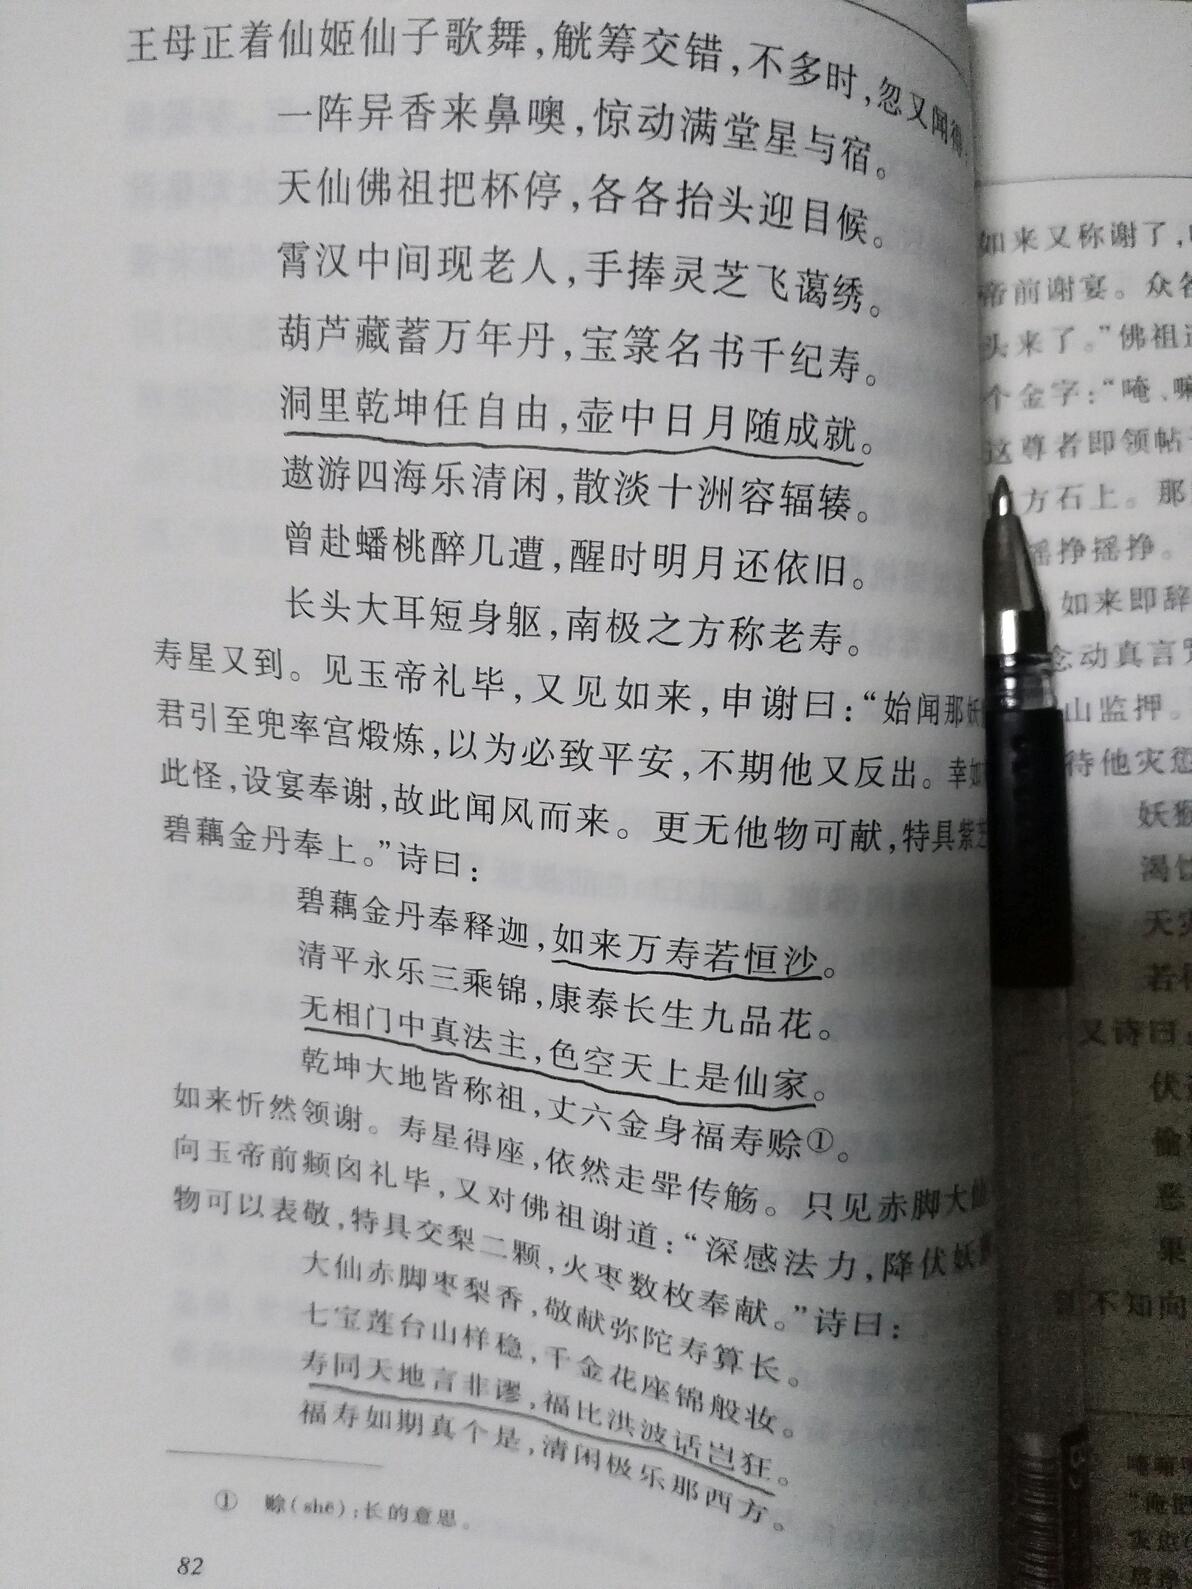 王母正着仙姬仙子歌舞，觥筹交错，不多时，忽又闻得：
一阵异香来鼻噢，惊动满堂星与宿。
天仙佛祖把杯停，各各抬头迎目候。
霄汉中间现老人，手捧灵芝飞蔼绣。
葫芦藏蓄万年丹，宝箓名书千纪寿。
洞里乾坤任自由，壶中日月随成就。
遨游四海乐清闲，散淡十洲容辐辏。
曾赴蟠桃醉几遭，醒时明月还依旧。
长头大耳短身躯，南极之方称老寿。
寿星又到。见玉帝礼毕，又见如来，申谢曰：“始闻那妖
君引至兜率宫煅炼，以为必致平安，不期他又反出。幸如
此怪，设宴奉谢，故此闻风而来。更无他物可献，特具紫芝
碧藕金丹奉上。”诗曰：
碧藕金丹奉释迦，如来万寿若恒沙。
清平永乐三乘锦，康泰长生九品花。
无相门中真法主，色空天上是仙家。
乾坤大地皆称祖，丈六金身福寿赊①。
如来忻然领谢。寿星得座，依然走斝传觞。只见赤脚大仙
向玉帝前頫囟礼毕，又对佛祖谢道：“深感法力，降伏妖
物可以表敬，特具交梨二颗，火枣数枚奉献。”诗曰：
大仙赤脚枣梨香，敬献弥陀寿算长。
七宝莲台山样稳，千金花座锦般妆。
寿同天地言非谬，福比洪波话岂狂。
福寿如期真个是，清闲极乐那西方。
① 赊(shē)：长的意思。
82
如来又称谢了，
帝前谢宴。众各
头来了。”佛祖
个金字：“唵、嘛
这尊者即领帖
方石上。那
摇挣摇挣。
如来即辞
念动真言咒
山监押。
待他灾愆
妖猴
渴饮
天灾
若得
又诗曰：
伏
偷
恶
果
不知向